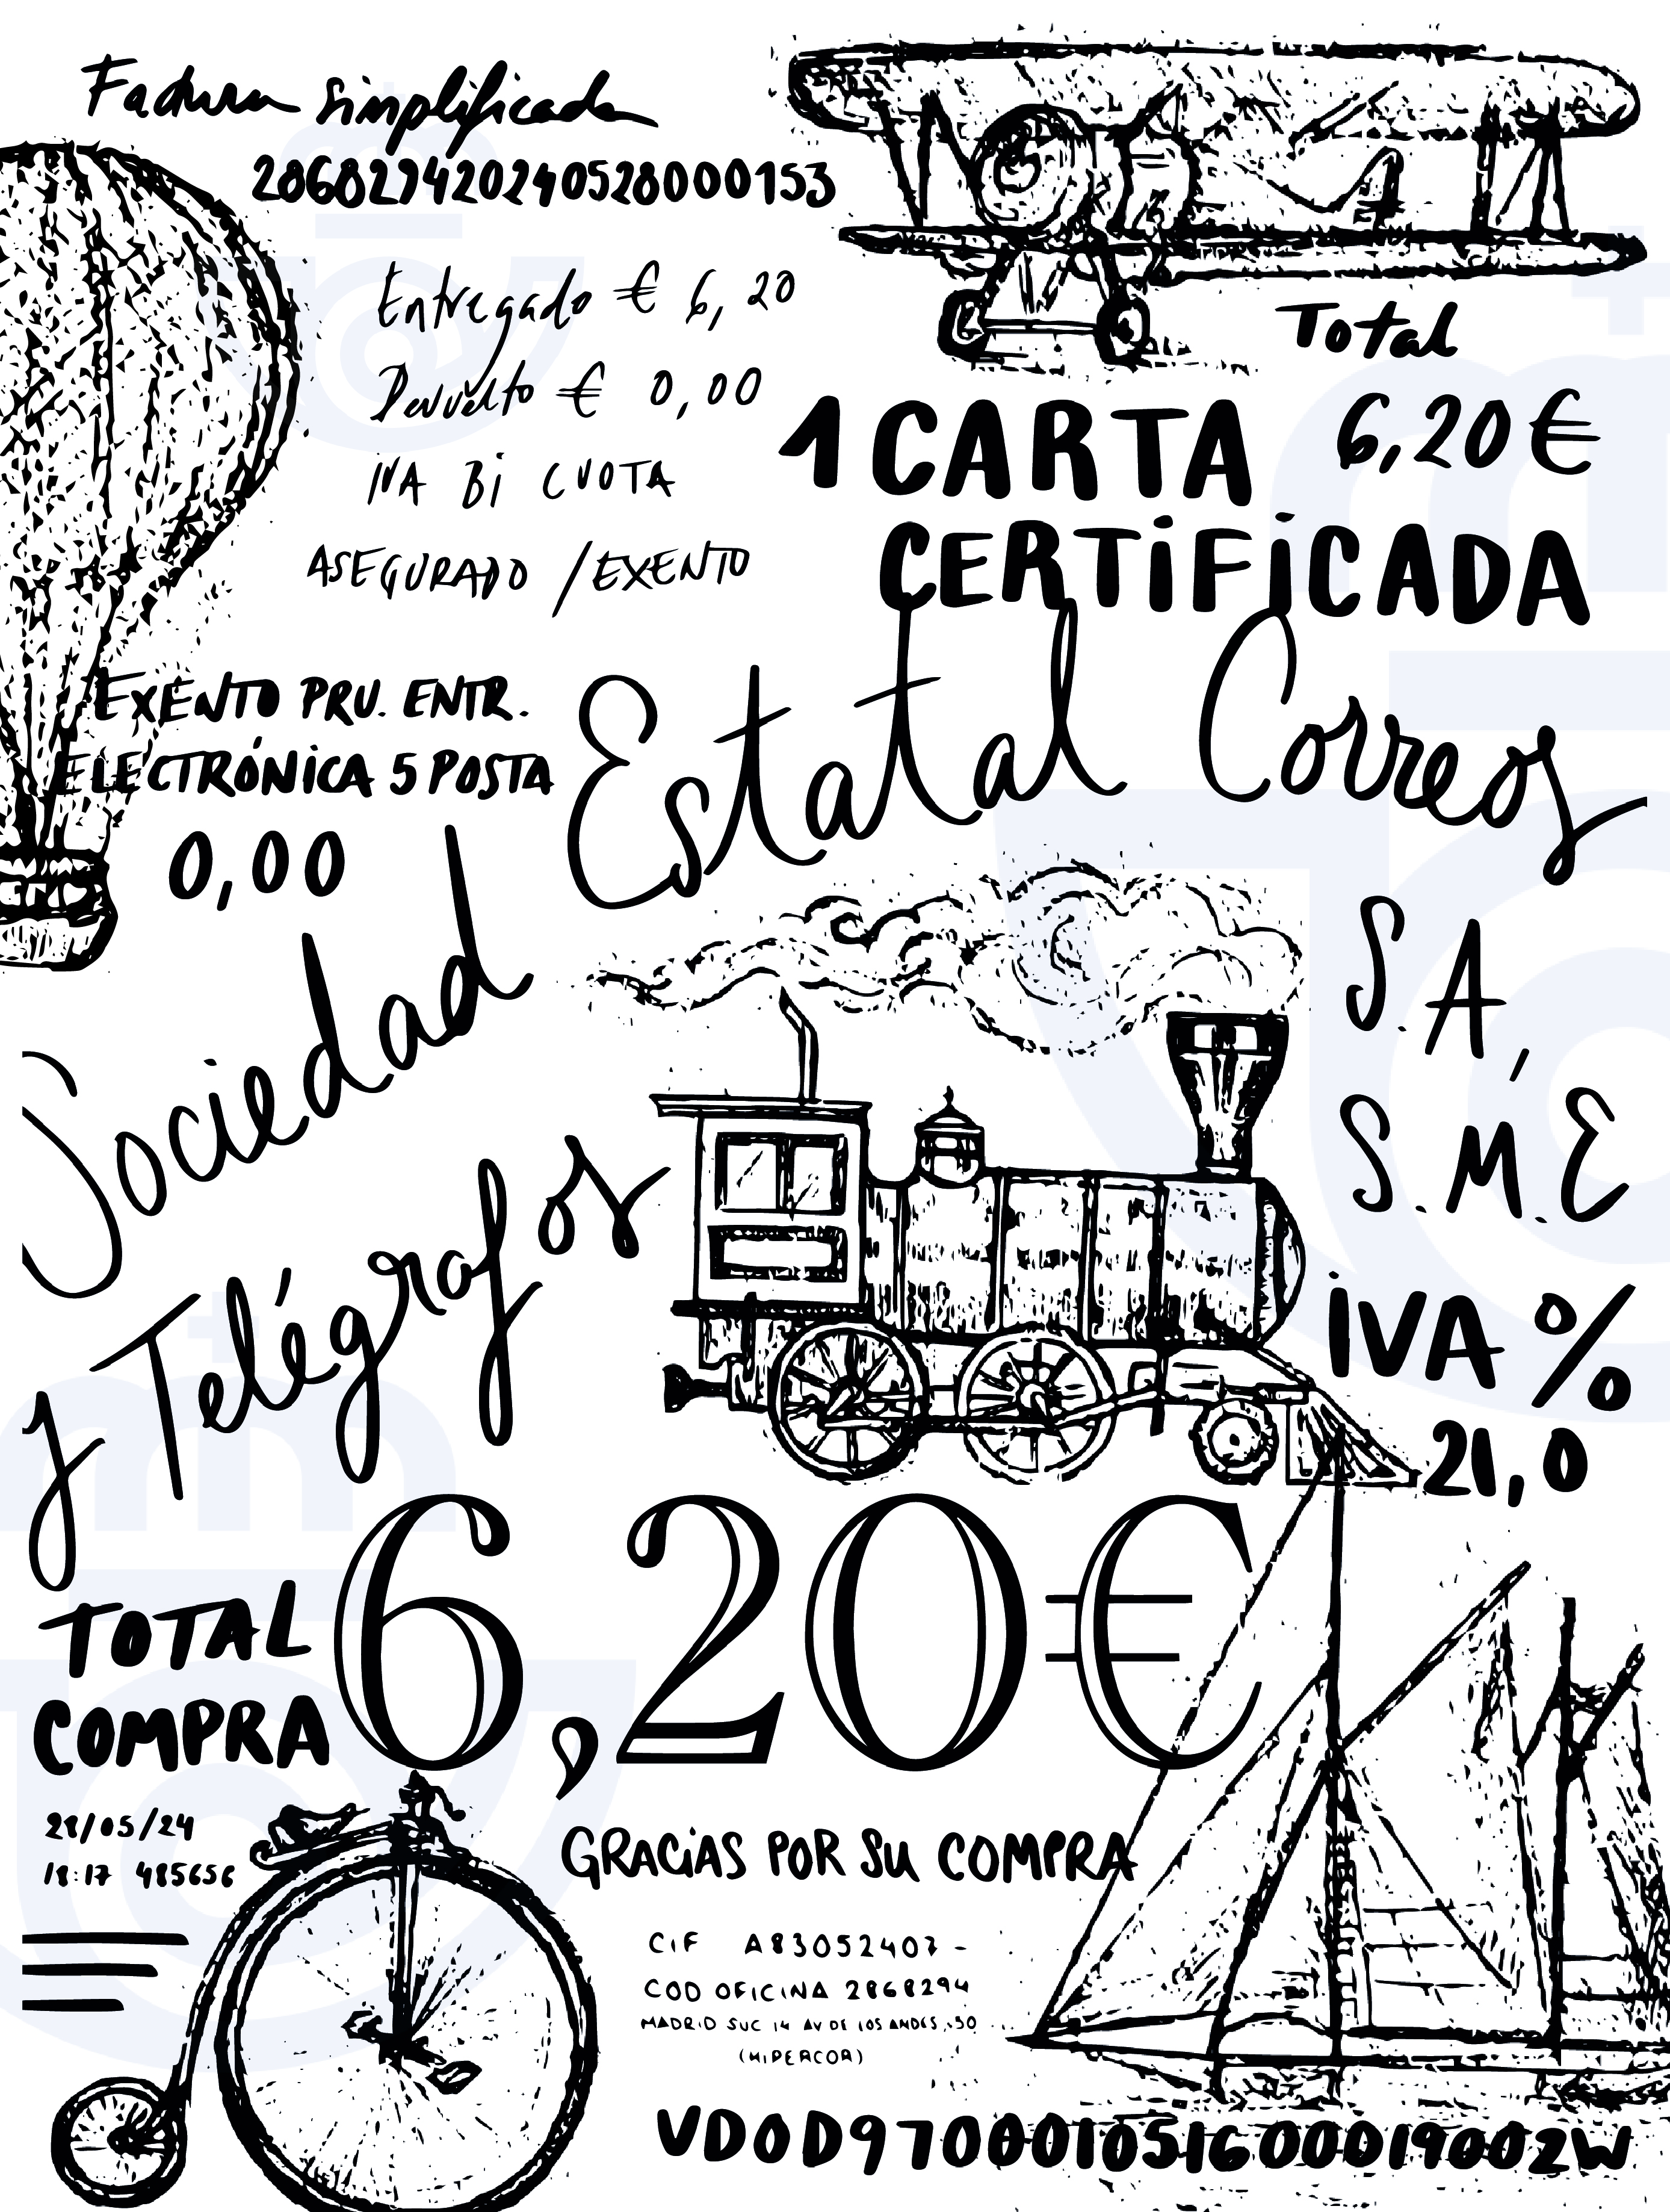 Factura simplificada
286829420240528000153
Entregado € 6,20
Devuelto € 0,00
IVA Bi CUOTA
ASEGURADO /EXENTO
Total
1 CARTA 6,20€
CERTiFiCADA
EXENTO PRU. ENTR.
ELECTRÓNiCA 5 POSTA
0,00
Sociedad Estatal Correos
y Telégrafos
S.A,
S.M.E
iVA %
21,0
TOTAL
COMPRA
6,20€
28/05/24
18:17 485656
GRACiAS POR SU COMPRA
CiF A83052407-
COD OFICINA 2868294
MADRID SUC 14 AV DE LOS ANDES, 50
(HIPERCOR)
VD0D9700010516000019002W